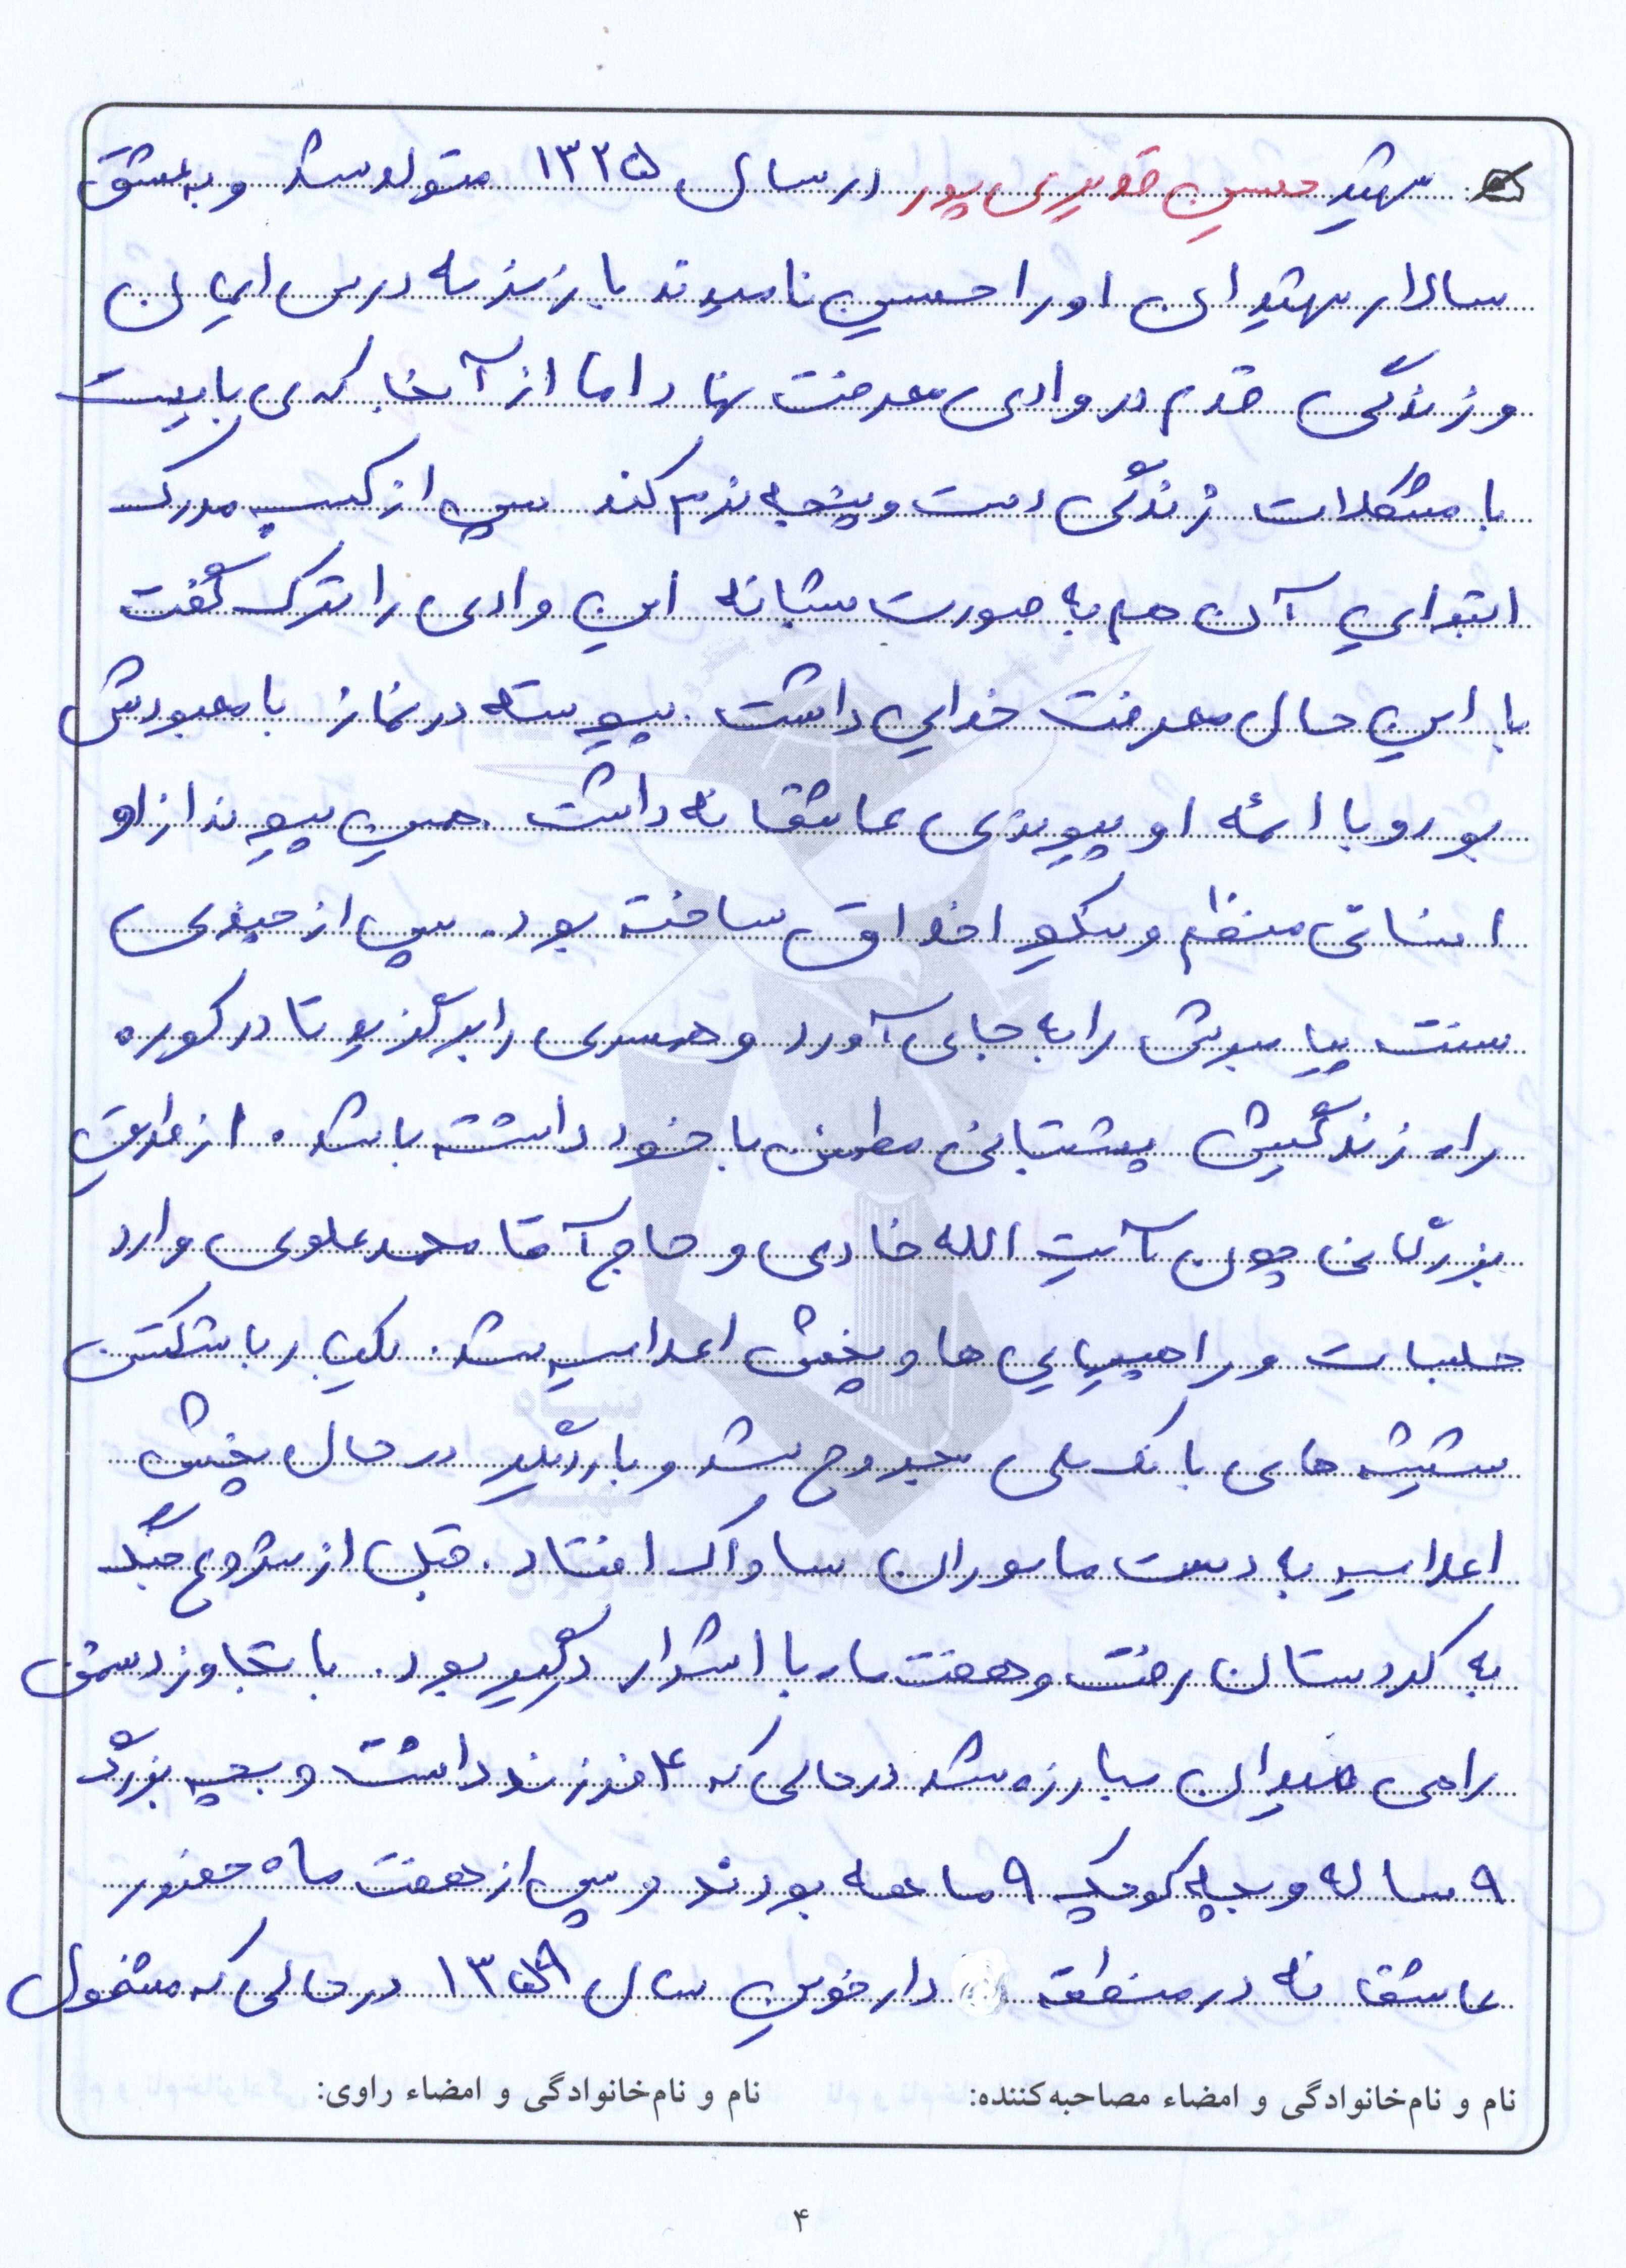 شهید حسین قدیری پور در سال ۱۳۲۵ متولد شد و به عشق
سالار شهیدان او را حسین نامیدند با زمزمه درس ایمان
و زندگی قدم در وادی معرفت نهاد اما از آنجا که می بایست
با مشکلات زندگی دست و پنجه نرم کند پس از کسب مدرک
ابتدایی آن هم به صورت شبانه این وادی را ترک گفت
با این حال معرفت خدایی داشت. پیوسته در نماز با معبودش
بود و با ائمه او پیوندی عاشقانه داشت. همین پیوند از او
انسانی منظم و نیکو اخلاق ساخته بود. پس از چندی
سنت پیامبرش را به جای آورد و همسری را برگزید تا در کوره
راه زندگیش پشتبانی مطمئن با خود داشته باشد. از طریق
بزرگانی چون آیت الله خادمی و حاج آقا محمد علوی وارد
جلسات و راهپیمایی ها و پخش اعلامیه شد. یکبار با شکستن
شیشه های بانک ملی مجروح شد و بار دیگر در حال پخش
اعلامیه به دست ماموران ساواک افتاد. قبل از شروع جنگ
به کردستان رفت و هفت ماه با اشرار درگیر بود. با تجاوز دشمن
راهی میدان مبارزه شد در حالی که ۴ فرزند داشت و بچه بزرگ
۹ ساله و بچه کوچک ۹ ماهه بودند و پس از هفت ماه حضور
عاشقانه در منطقه دارخوین سال ۱۳۵۹ در حالی که مشغول
نام و نام‌خانوادگی و امضاء مصاحبه‌کننده: نام و نام‌خانوادگی و امضاء راوی:
۴